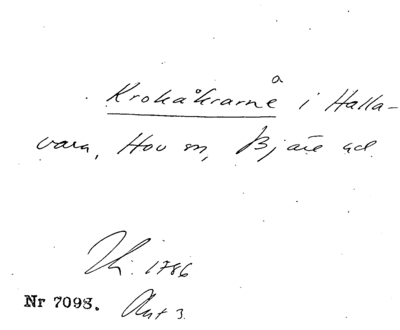 a
Krokåkrarne i Halla-
vara, Hov sn, Bjäre hd.
1786
Nr 7093. Akt 3.